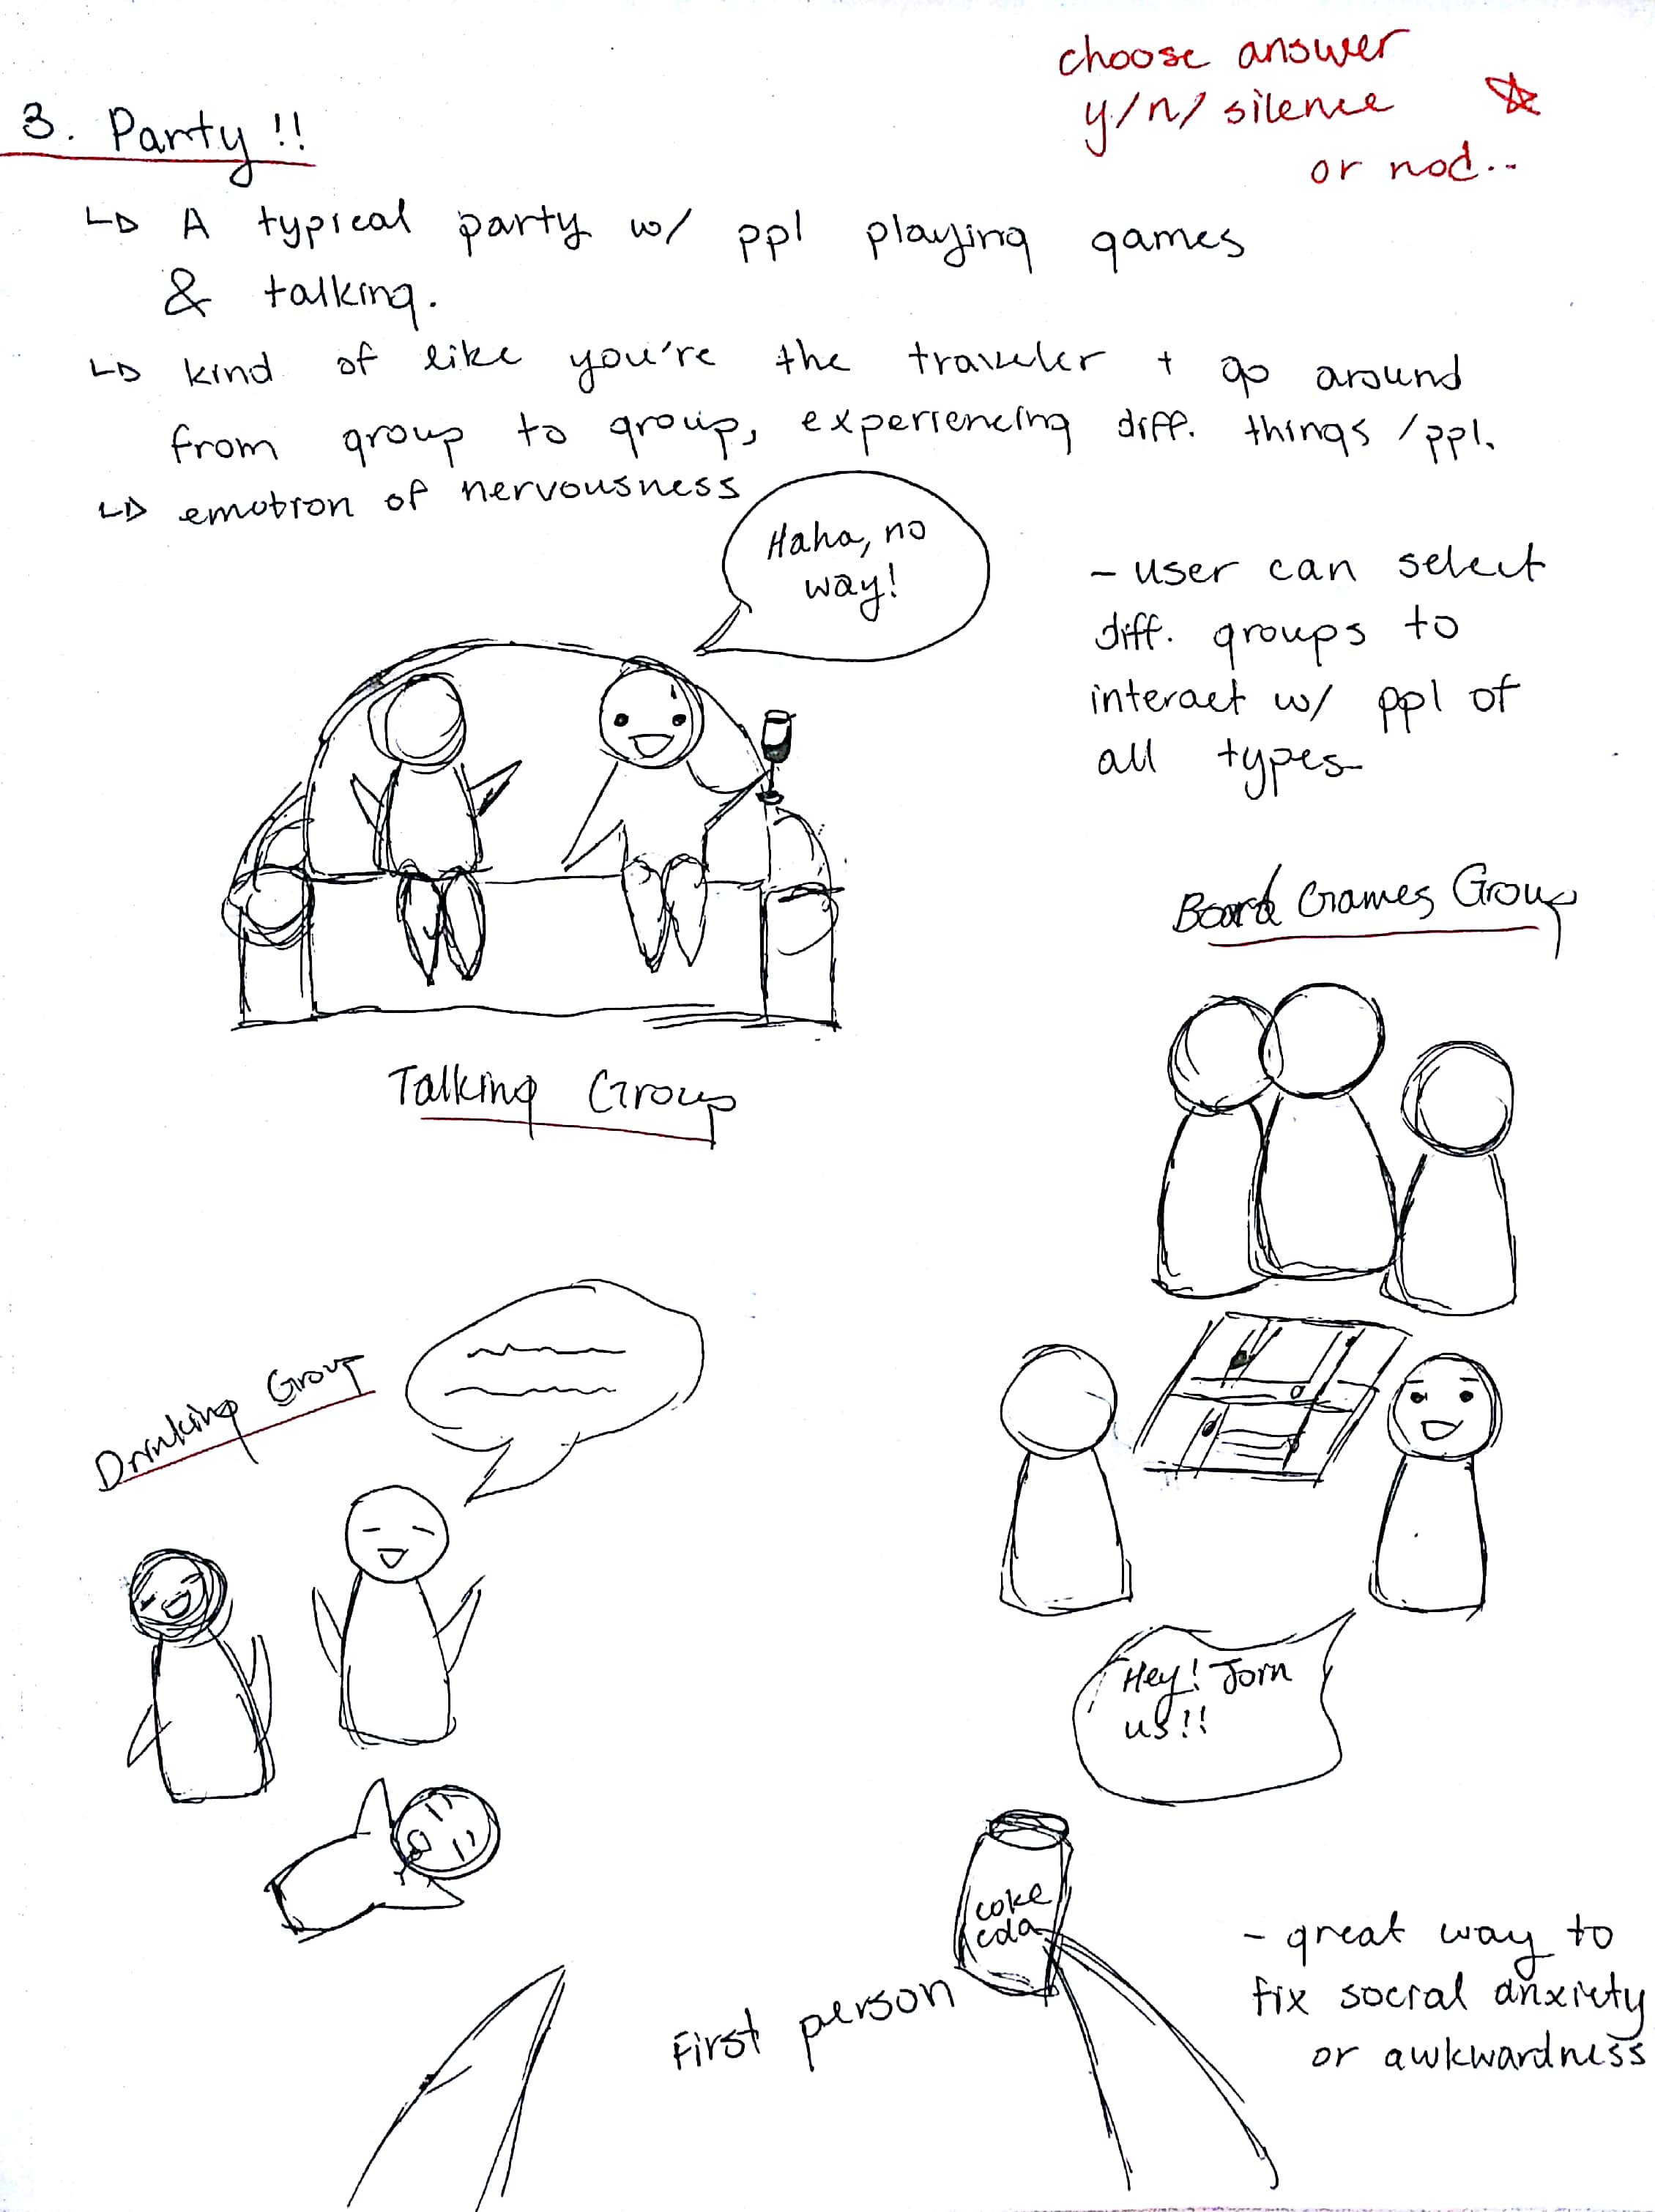 choose answer
y/n/silence
or nod..
3. Party!!
A typical party w/ ppl playing games
& talking.
kind of like you're the traveler + go around
from group to group, experiencing diff. things/ppl.
emotion of nervousness
Haha, no
way!
- user can select
diff. groups to
interact w/ ppl of
all types
Talking Group
Board Games Group
Drinking Group
Hey! Join
us!!
coke
cola
First person
- great way to
fix social anxiety
or awkwardness